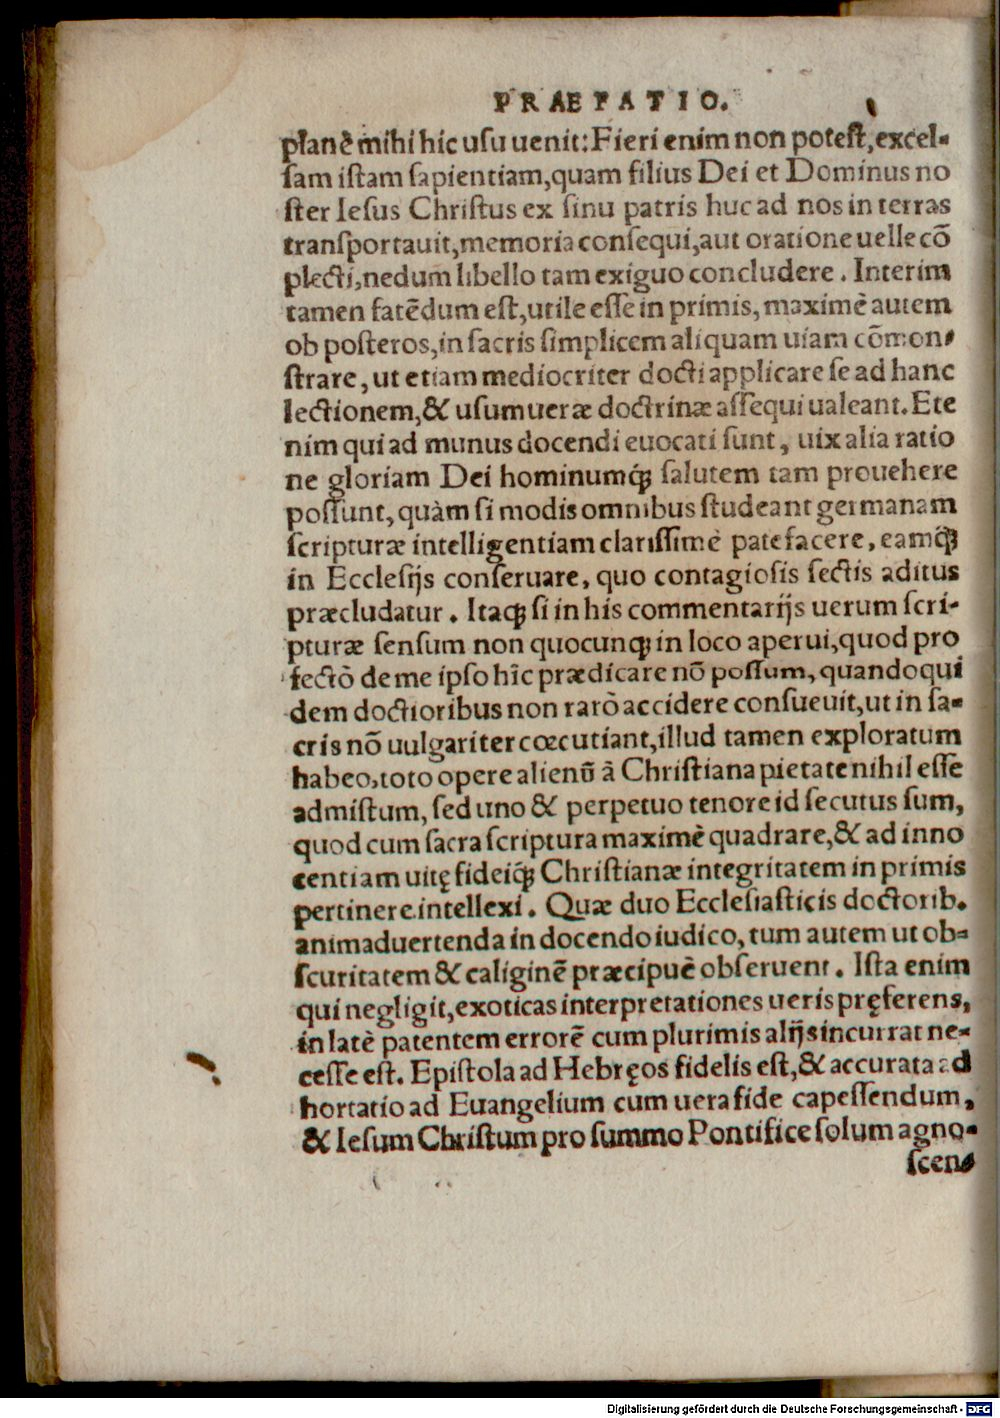 PRAEFATIO.
planè mihi hic usu uenit: Fieri enim non potest, excel-
sam istam sapientiam, quam filius Dei et Dominus no
ster Iesus Christus ex sinu patris huc ad nos in terras
transportauit, memoria consequi, aut oratione uelle cō
plecti, nedum libello tam exiguo concludere. Interim
tamen fatēdum est, utile esse in primis, maximè autem
ob posteros, in sacris simplicem aliquam uiam cōmon-
strare, ut etiam mediocriter docti applicare se ad hanc
lectionem, & usum ueræ doctrinæ assequi ualeant. Ete
nim qui ad munus docendi euocati sunt, uix alia ratio
ne gloriam Dei hominumq́; salutem tam prouehere
possunt, quàm si modis omnibus studeant germanam
scripturæ intelligentiam clarissimè patefacere, eamq́;
in Ecclesijs conseruare, quo contagiosis sectis aditus
præcludatur. Itaq; si in his commentarijs uerum scri-
pturæ sensum non quocunq; in loco aperui, quod pro
fectò de me ipso hîc prædicare nō possum, quandoqui
dem doctioribus non rarò accidere consueuit, ut in sa-
cris nō uulgariter cœcutiant, illud tamen exploratum
habeo, toto opere alienū à Christiana pietate nihil esse
admistum, sed uno & perpetuo tenore id secutus sum,
quod cum sacra scriptura maximè quadrare, & ad inno
centiam uitę fideiq́; Christianæ integritatem in primis
pertinere intellexi. Quæ duo Ecclesiasticis doctorib.
animaduertenda in docendo iudico, tum autem ut ob-
scuritatem & caliginē præcipuè obseruent. Ista enim
qui negligit, exoticas interpretationes ueris pręferens,
in latè patentem errorē cum plurimis alijs incurrat ne-
cesse est. Epistola ad Hebręos fidelis est, & accurata ad
hortatio ad Euangelium cum uera fide capessendum,
& Iesum Christum pro summo Pontifice solum agno-
scen-
Digitalisierung gefördert durch die Deutsche Forschungsgemeinschaft - DFG